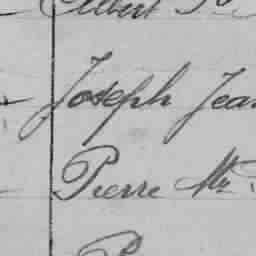 Albert
Joseph Jean
Pierre